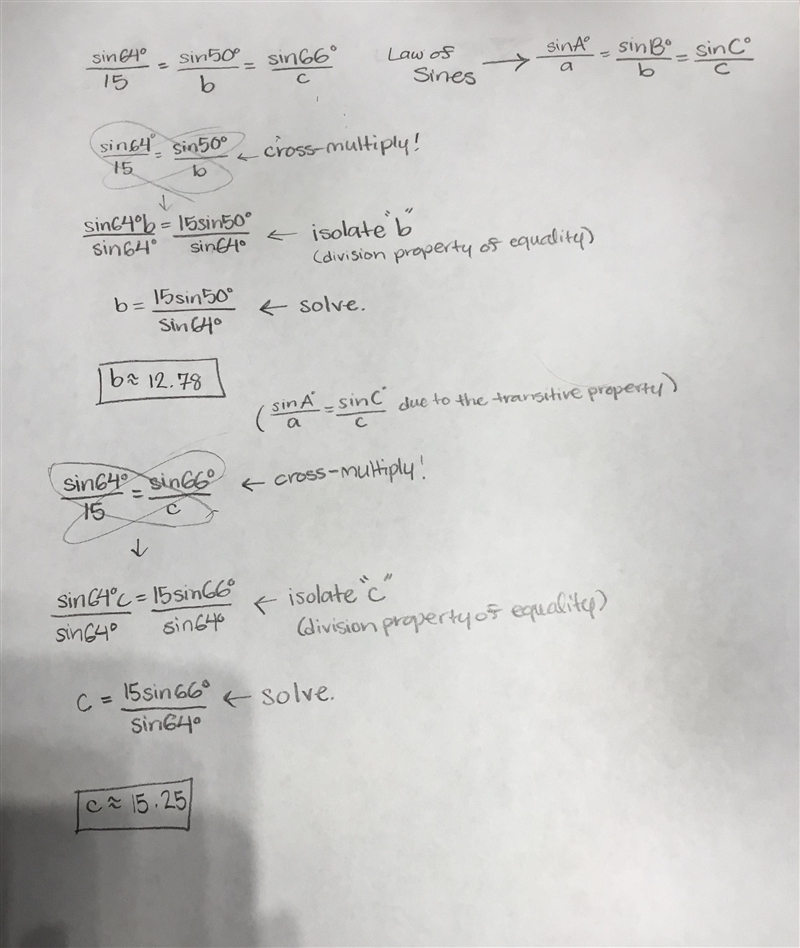 sin64°/15 = sin50°/b = sin66°/c Law of Sines → sinA°/a = sinB°/b = sinC°/c
sin64°/15 = sin50°/b ← cross-multiply!
↓
sin64°b/sin64° = 15sin50°/sin64° ← isolate "b"
(division property of equality)
b = 15sin50°/sin64° ← solve.
b ≈ 12.78
(sinA°/a = sinC°/c due to the transitive property)
sin64°/15 = sin66°/c ← cross-multiply!
↓
sin64°c/sin64° = 15sin66°/sin64° ← isolate "c"
(division property of equality)
c = 15sin66°/sin64° ← solve.
c ≈ 15.25